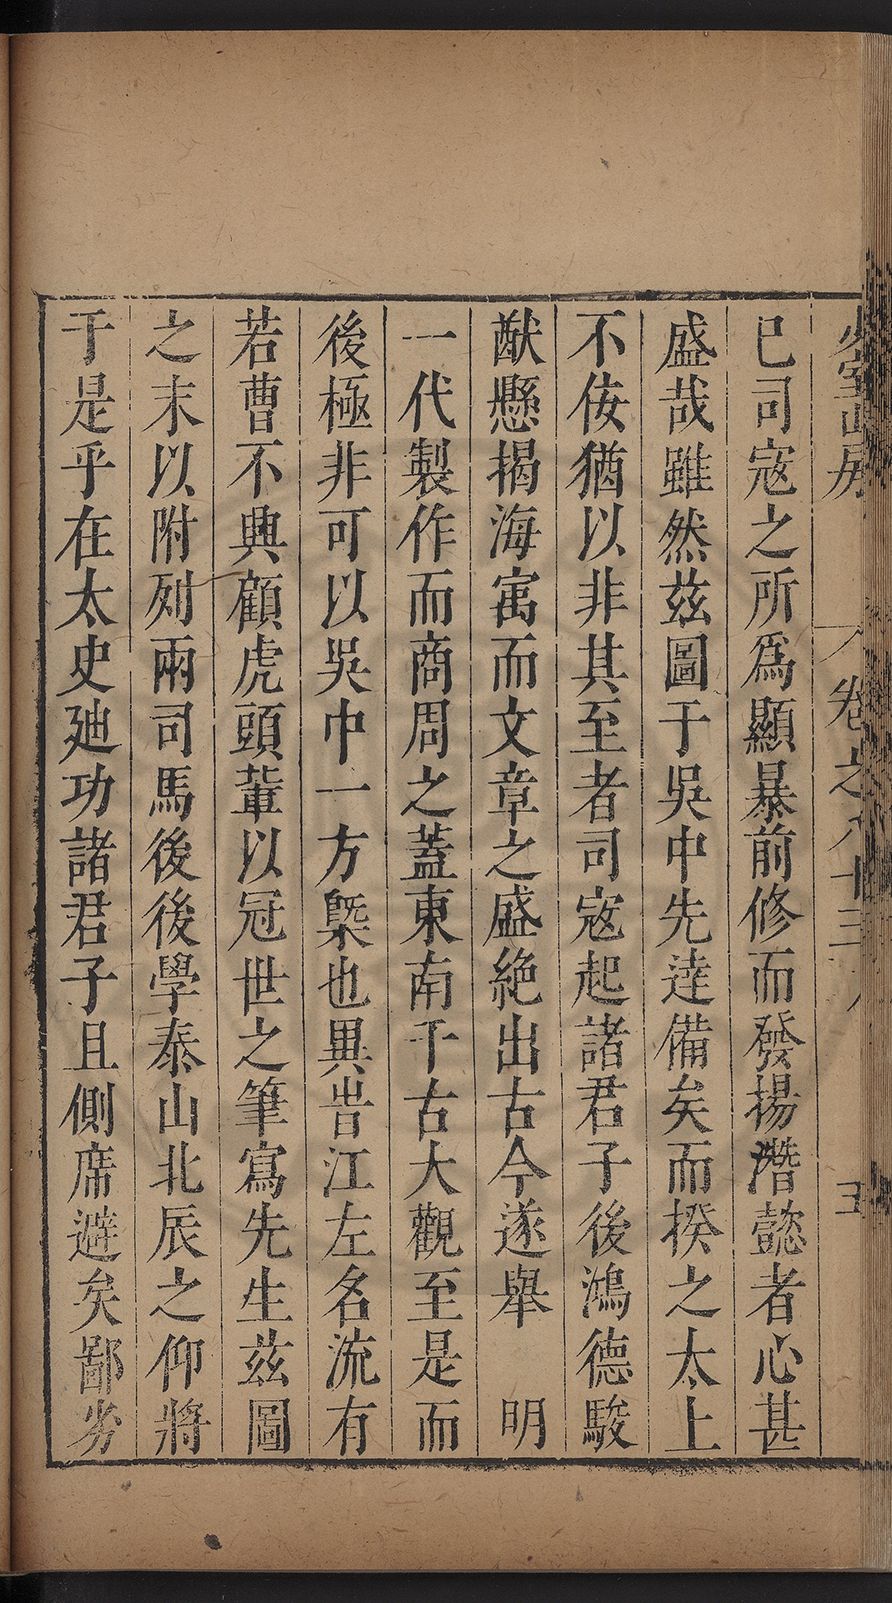 少室山房 卷之八十三 五
已司寇之所爲顯暴前修而發揚潛懿者心甚
盛哉雖然玆圖于吳中先逹備矣而揆之太上
不佞猶以非其至者司寇起諸君子後鴻德駿
猷懸揭海寓而文章之盛絶出古今遂舉 明
一代製作而商周之蓋東南千古大觀至是而
後極非可以吳中一方槩也異時江左名流有
若曹不興顧虎頭輩以冠世之筆寫先生玆圖
之末以附列兩司馬後後學泰山北辰之仰將
于是乎在太史廸功諸君子且側席避矣鄙劣